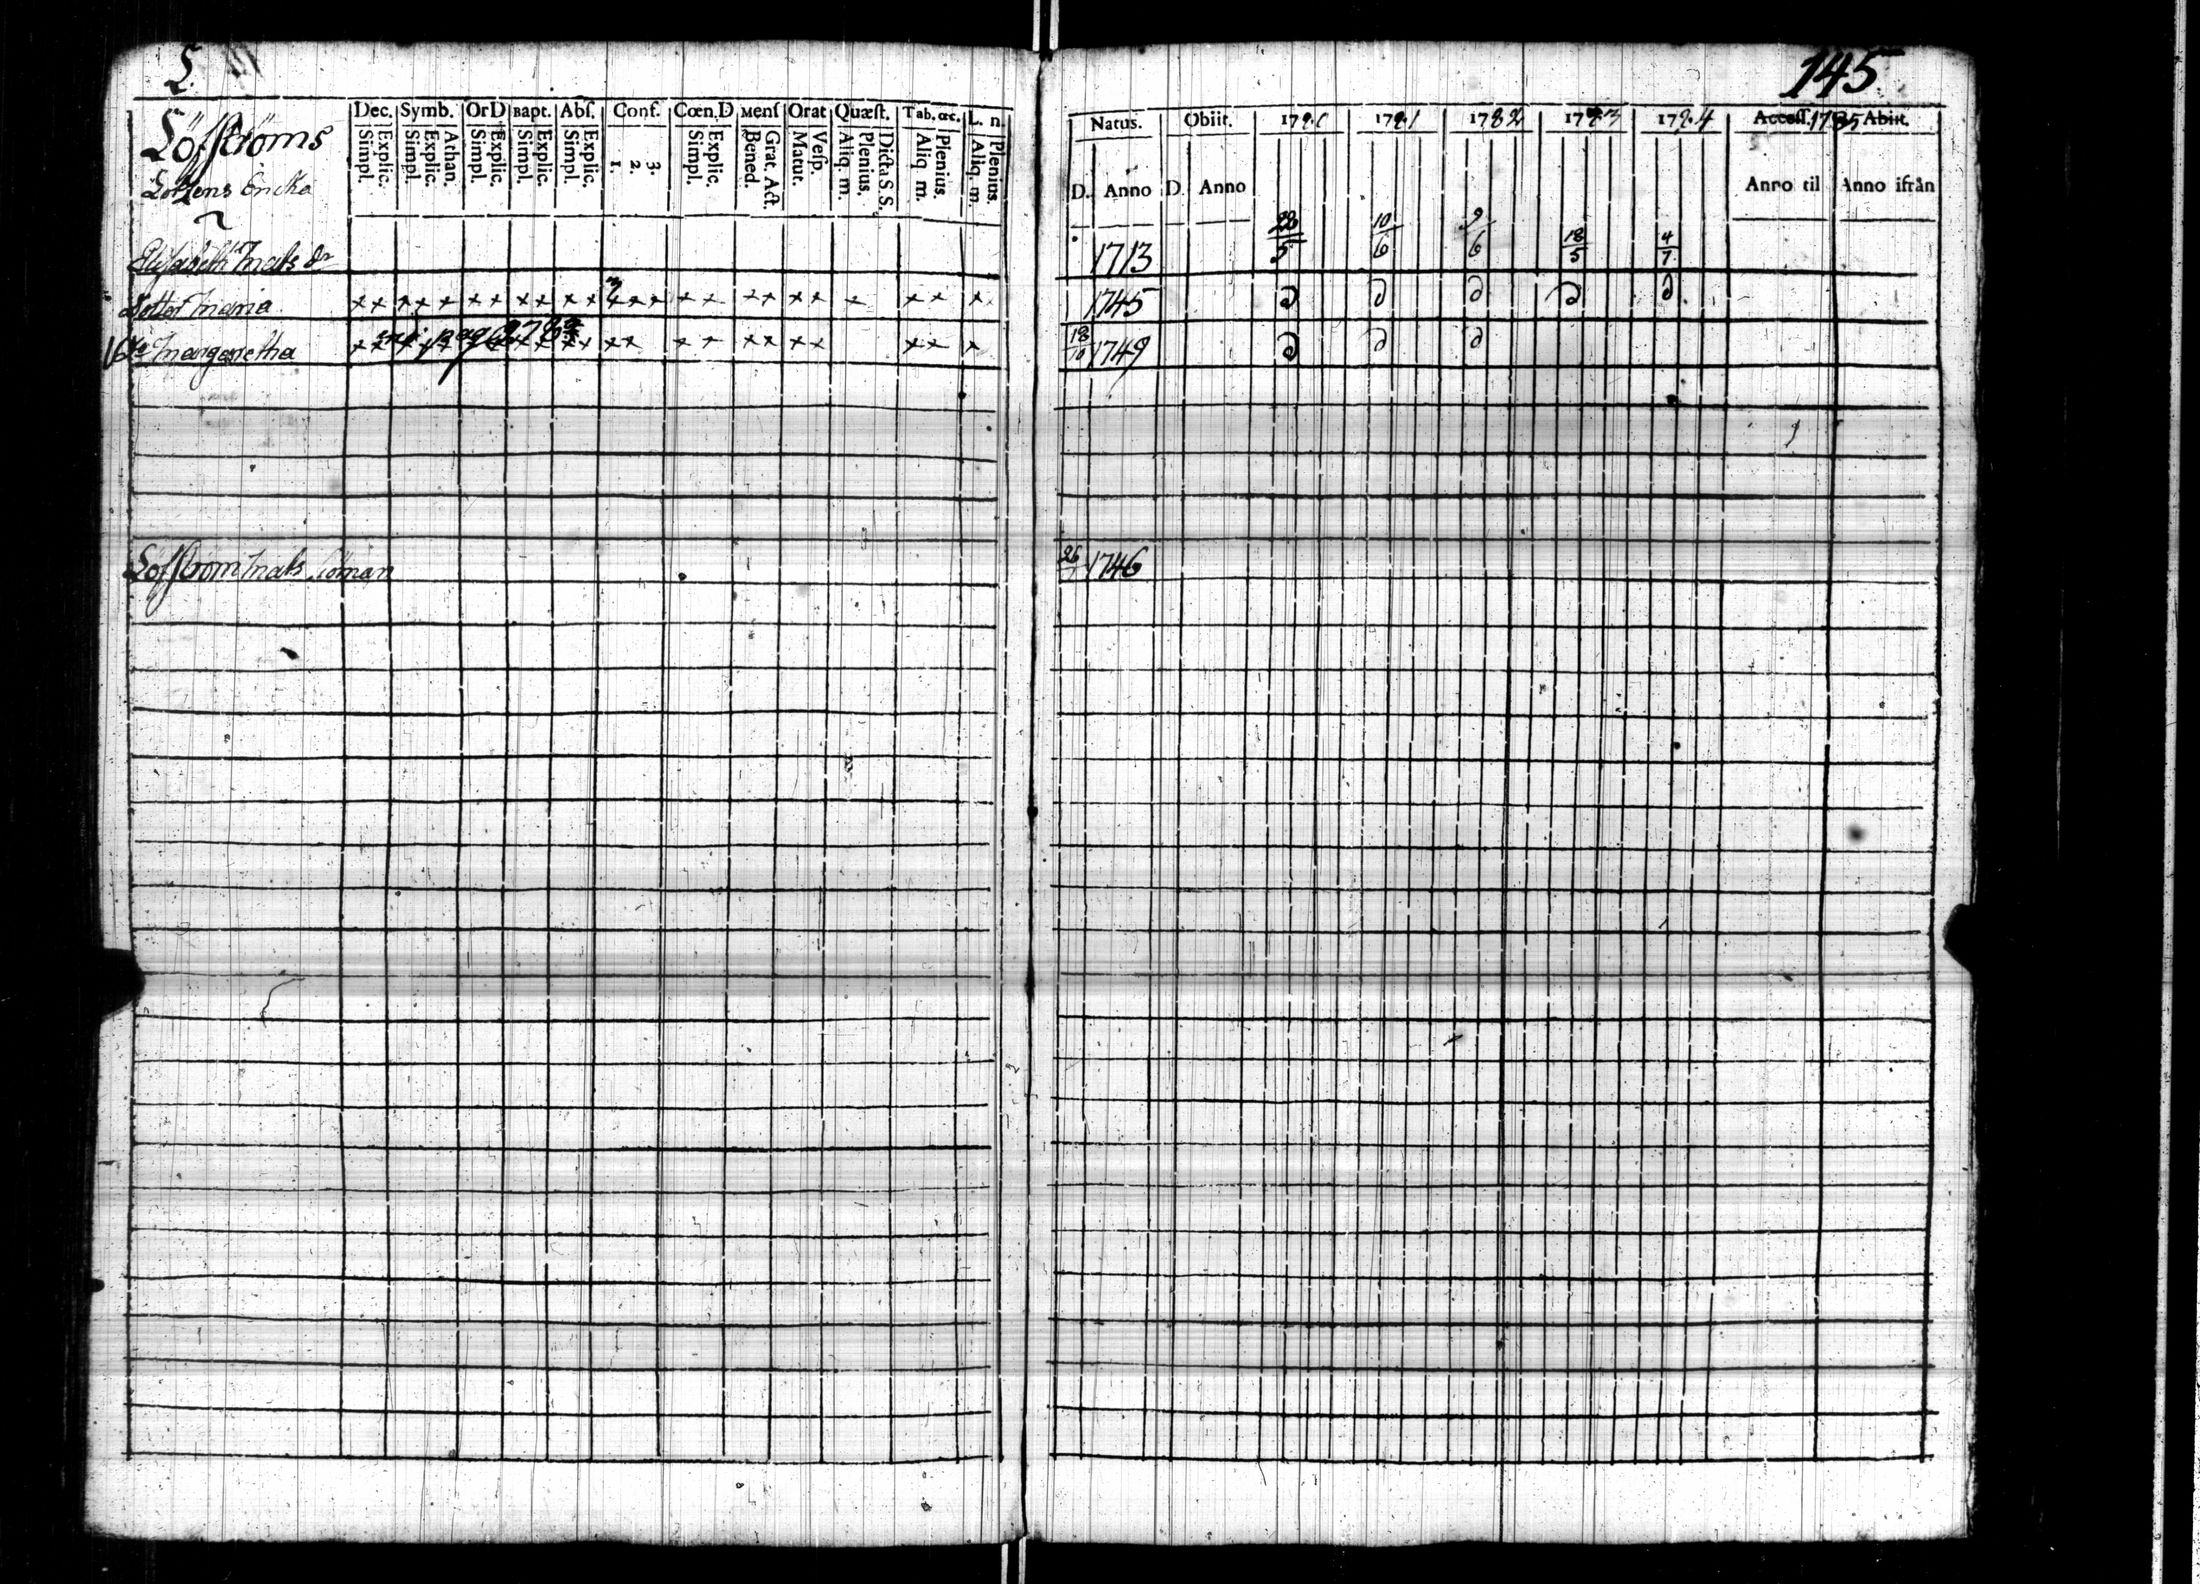 L.
145
Löfströms
Enckia
Dec. Symb. OrD Bapt. Abſ. Conf. Cœn.D Menſ Orat Quæſt. Tab. œc. L. n.
Simpl. Explic. Simpl. Explic. Athan. Simpl. Explic. Simpl. Explic. Simpl. Explic. 1. 2. 3. Simpl. Explic. Bened. Grat. Act. Matut. Veſp. Aliq. m. Plenius. Dicta S.S. Aliq. m. Plenius. Aliq. m. Plenius.
Natus. Obiit. 1780 1781 1782 1783 1784 Acceſſ. 1785 Abiit.
D. Anno D. Anno Anno til Anno ifrån
Elisabeth Mats dr 1713 28/5 10/6 9/6 18/5 4/7
Dotter Maria x x x x x x x x x x x x x x x x x x x x x x x 1745
Margaretha x x x x x x x x x x x x x x x x x x x x x 18/10 1749
pag 678
Löfström Mats 26 1746